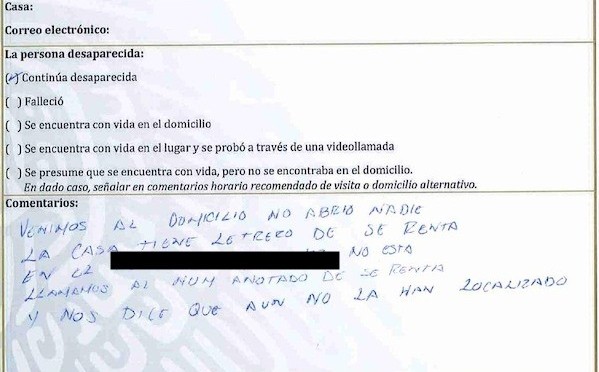 Casa:
Correo electrónico:
La persona desaparecida:
(✓) Continúa desaparecida
( ) Falleció
( ) Se encuentra con vida en el domicilio
( ) Se encuentra con vida en el lugar y se probó a través de una videollamada
( ) Se presume que se encuentra con vida, pero no se encontraba en el domicilio.
En dado caso, señalar en comentarios horario recomendado de visita o domicilio alternativo.
Comentarios:
VENIMOS AL DOMICILIO NO ABRIO NADIE
LA CASA TIENE LETRERO DE SE RENTA
EN EL NO ESTA
LLAMAMOS AL NUM ANOTADO DE SE RENTA
Y NOS DICE QUE AUN NO LA HAN LOCALIZADO